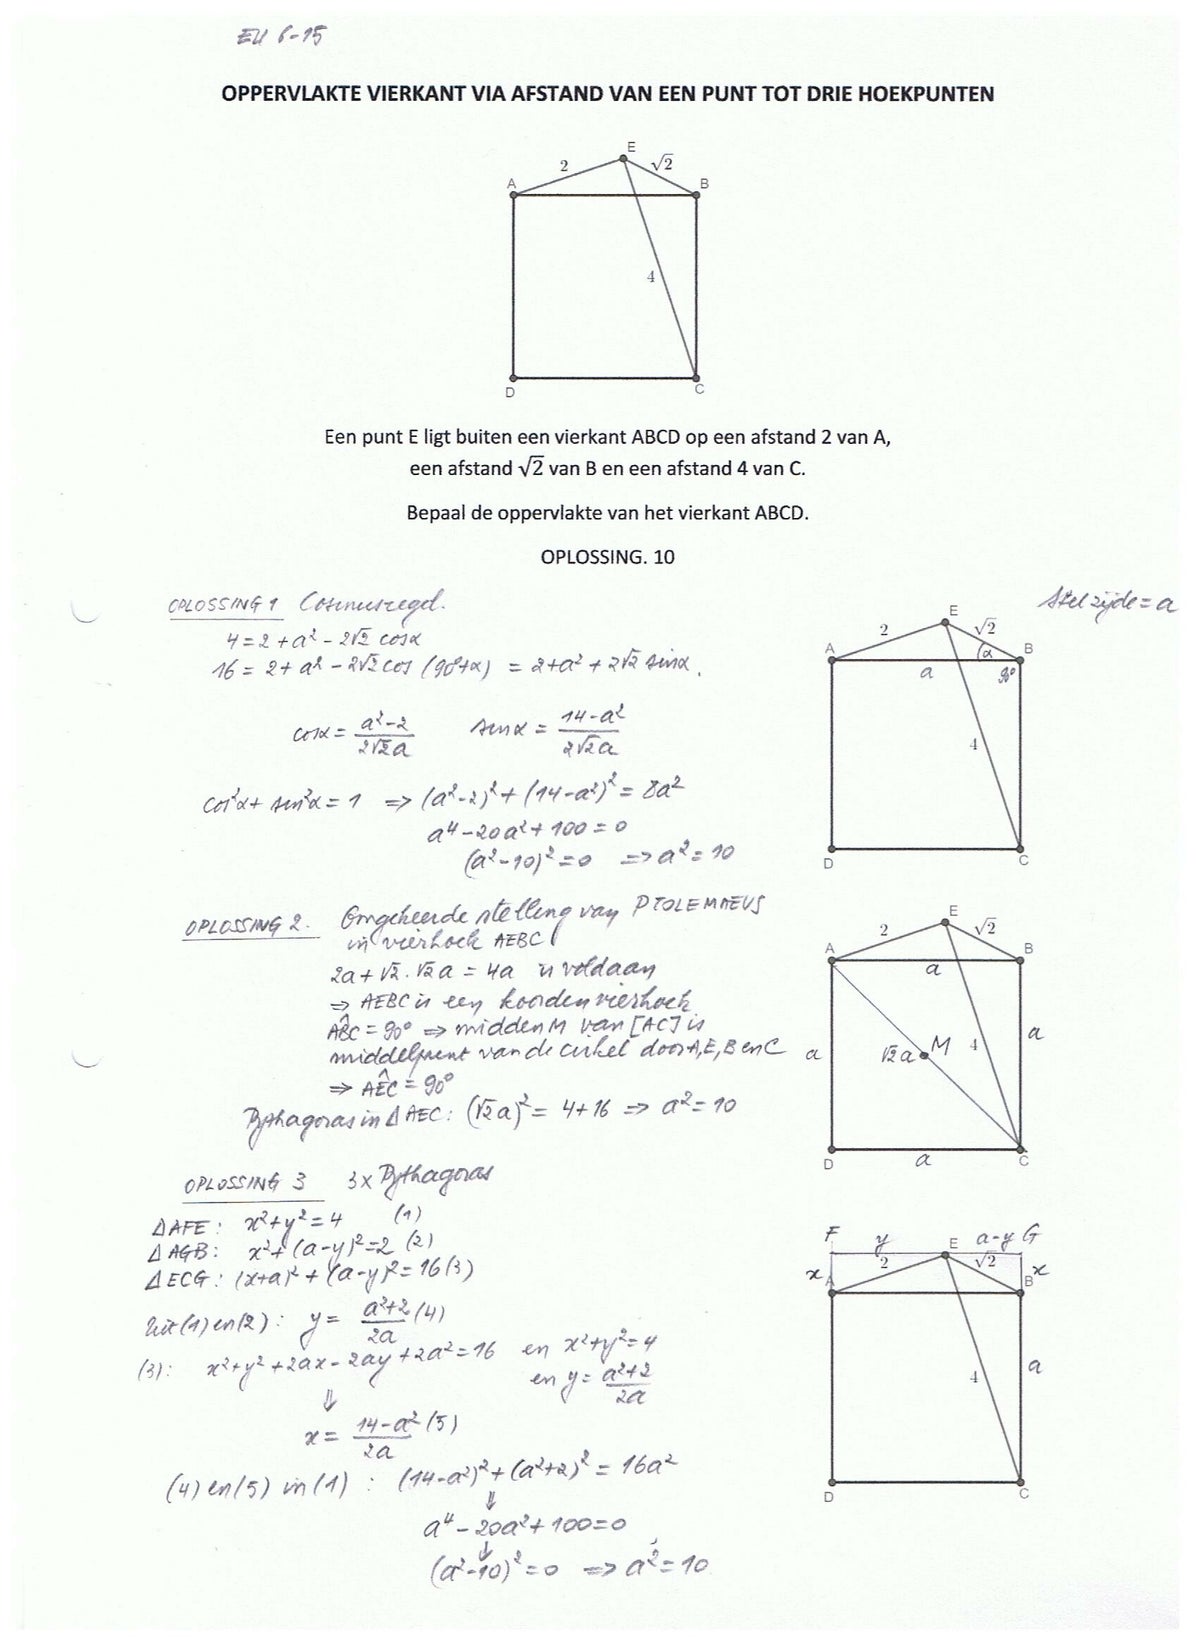 EU 6-15
OPPERVLAKTE VIERKANT VIA AFSTAND VAN EEN PUNT TOT DRIE HOEKPUNTEN
E
2
√2
A
B
4
D
C
Een punt E ligt buiten een vierkant ABCD op een afstand 2 van A,
een afstand √2 van B en een afstand 4 van C.
Bepaal de oppervlakte van het vierkant ABCD.
OPLOSSING. 10
OPLOSSING 1 Cosinusregel.
Stel zijde = a
4 = 2 + a² - 2√2 cosα
16 = 2 + a² - 2√2 cos (90°+α) = 2 + a² + 2√2 sinα.
cosα = (a²-2)/(2√2a) sinα = (14-a²)/(2√2a)
cos²α + sin²α = 1 => (a²-2)² + (14-a²)² = 8a²
a⁴ - 20a² + 100 = 0
(a²-10)² = 0 => a² = 10
E
2
√2
A
α
B
a
90°
4
D
C
OPLOSSING 2. Omgekeerde stelling van PTOLEMAEUS
in vierhoek AEBC
2a + √2.√2a = 4a is voldaan
=> AEBC is een koordenvierhoek
AB̂C = 90° => midden M van [AC] is
middelpunt van de cirkel door A, E, B en C
=> AÊC = 90°
Pythagoras in Δ AEC: (√2a)² = 4+16 => a² = 10
E
2
√2
A
B
a
a
√2a
M
4
a
D
a
C
OPLOSSING 3 3x Pythagoras
Δ AFE: x²+y² = 4 (1)
Δ AGB: x²+(a-y)² = 2 (2)
Δ ECG: (x+a)² + (a-y)² = 16 (3)
Uit (1) en (2): y = (a²+2)/(2a) (4)
(3): x²+y²+2ax-2ay+2a² = 16 en x²+y² = 4
en y = (a²+2)/(2a)
⇓
x = (14-a²)/(2a) (5)
(4) en (5) in (1) : (14-a²)² + (a²+2)² = 16a²
⇓
a⁴ - 20a² + 100 = 0
↓
(a²-10)² = 0 => a² = 10
F
y
E
a-y
G
2
√2
x
A
B
x
a
4
D
C